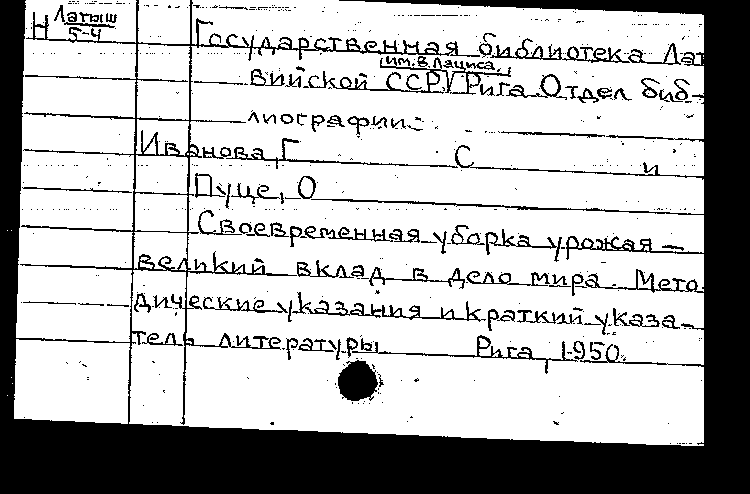 Н Латыш
5-4
Государственная библиотека Лат
им. В. Лациса.
вийской ССР, Рига Отдел биб-
лиографии.
Иванова, Г С и
Пуце, О
Своевременная уборка урожая —
великий вклад в дело мира. Мето
дические указания и краткий указа-
тель литературы Рига, 1950.